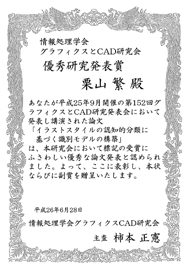 情報処理学会
グラフィクスとCAD研究会
優秀研究発表賞
栗山 繁 殿
あなたが平成25年9月開催の第152回グ
ラフィクスとCAD研究発表会において
発表し講演された論文
「イラストスタイルの認知的分類に
基づく識別モデルの構築」
は、本研究会において標記の受賞に
ふさわしい優秀な論文発表と認められ
ました。よって、ここに表彰し、本状
ならびに副賞を贈呈いたします。
平成26年6月28日
情報処理学会グラフィクスCAD研究会
主査 柿本 正憲